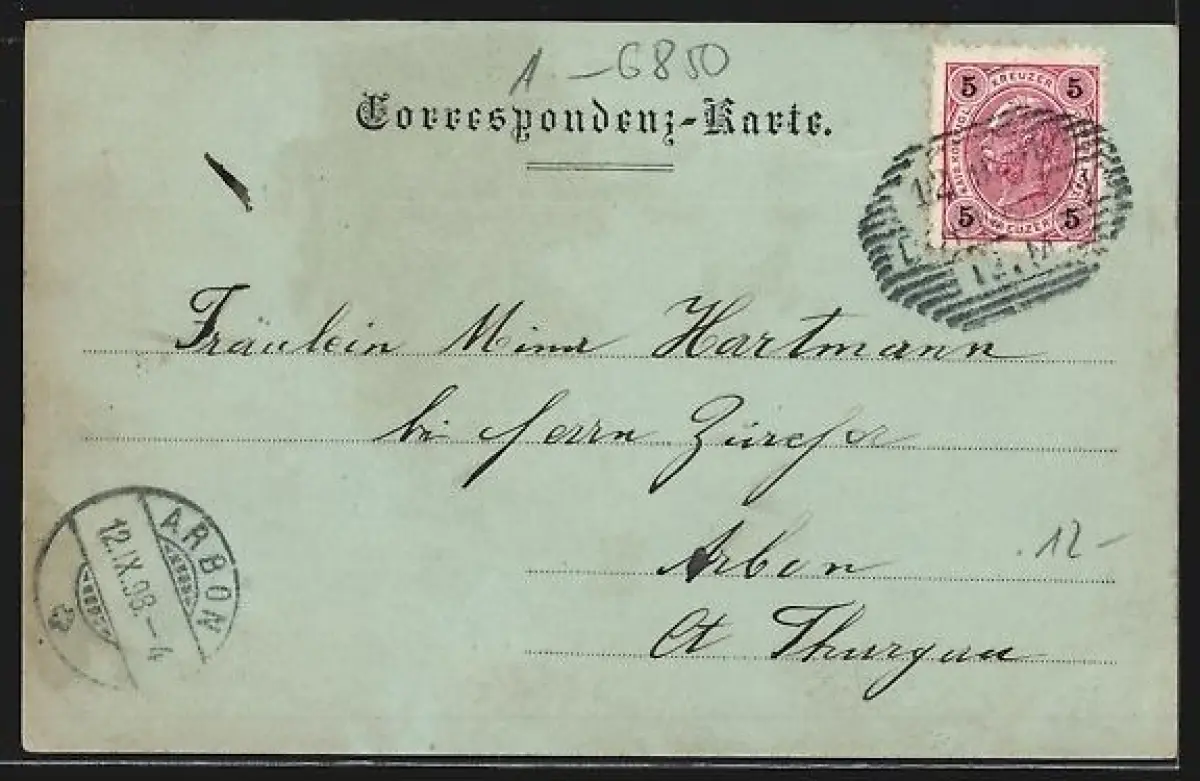 1 - 6850
Correspondenz-Karte.
5 KREUZER 5
5 KREUZER 5
12
12.M
Fräulein Mina Hartmann
bei Herrn Zürcher
Arbon
12 -
Ct Thurgau
ARBON
12.IX.98.-4